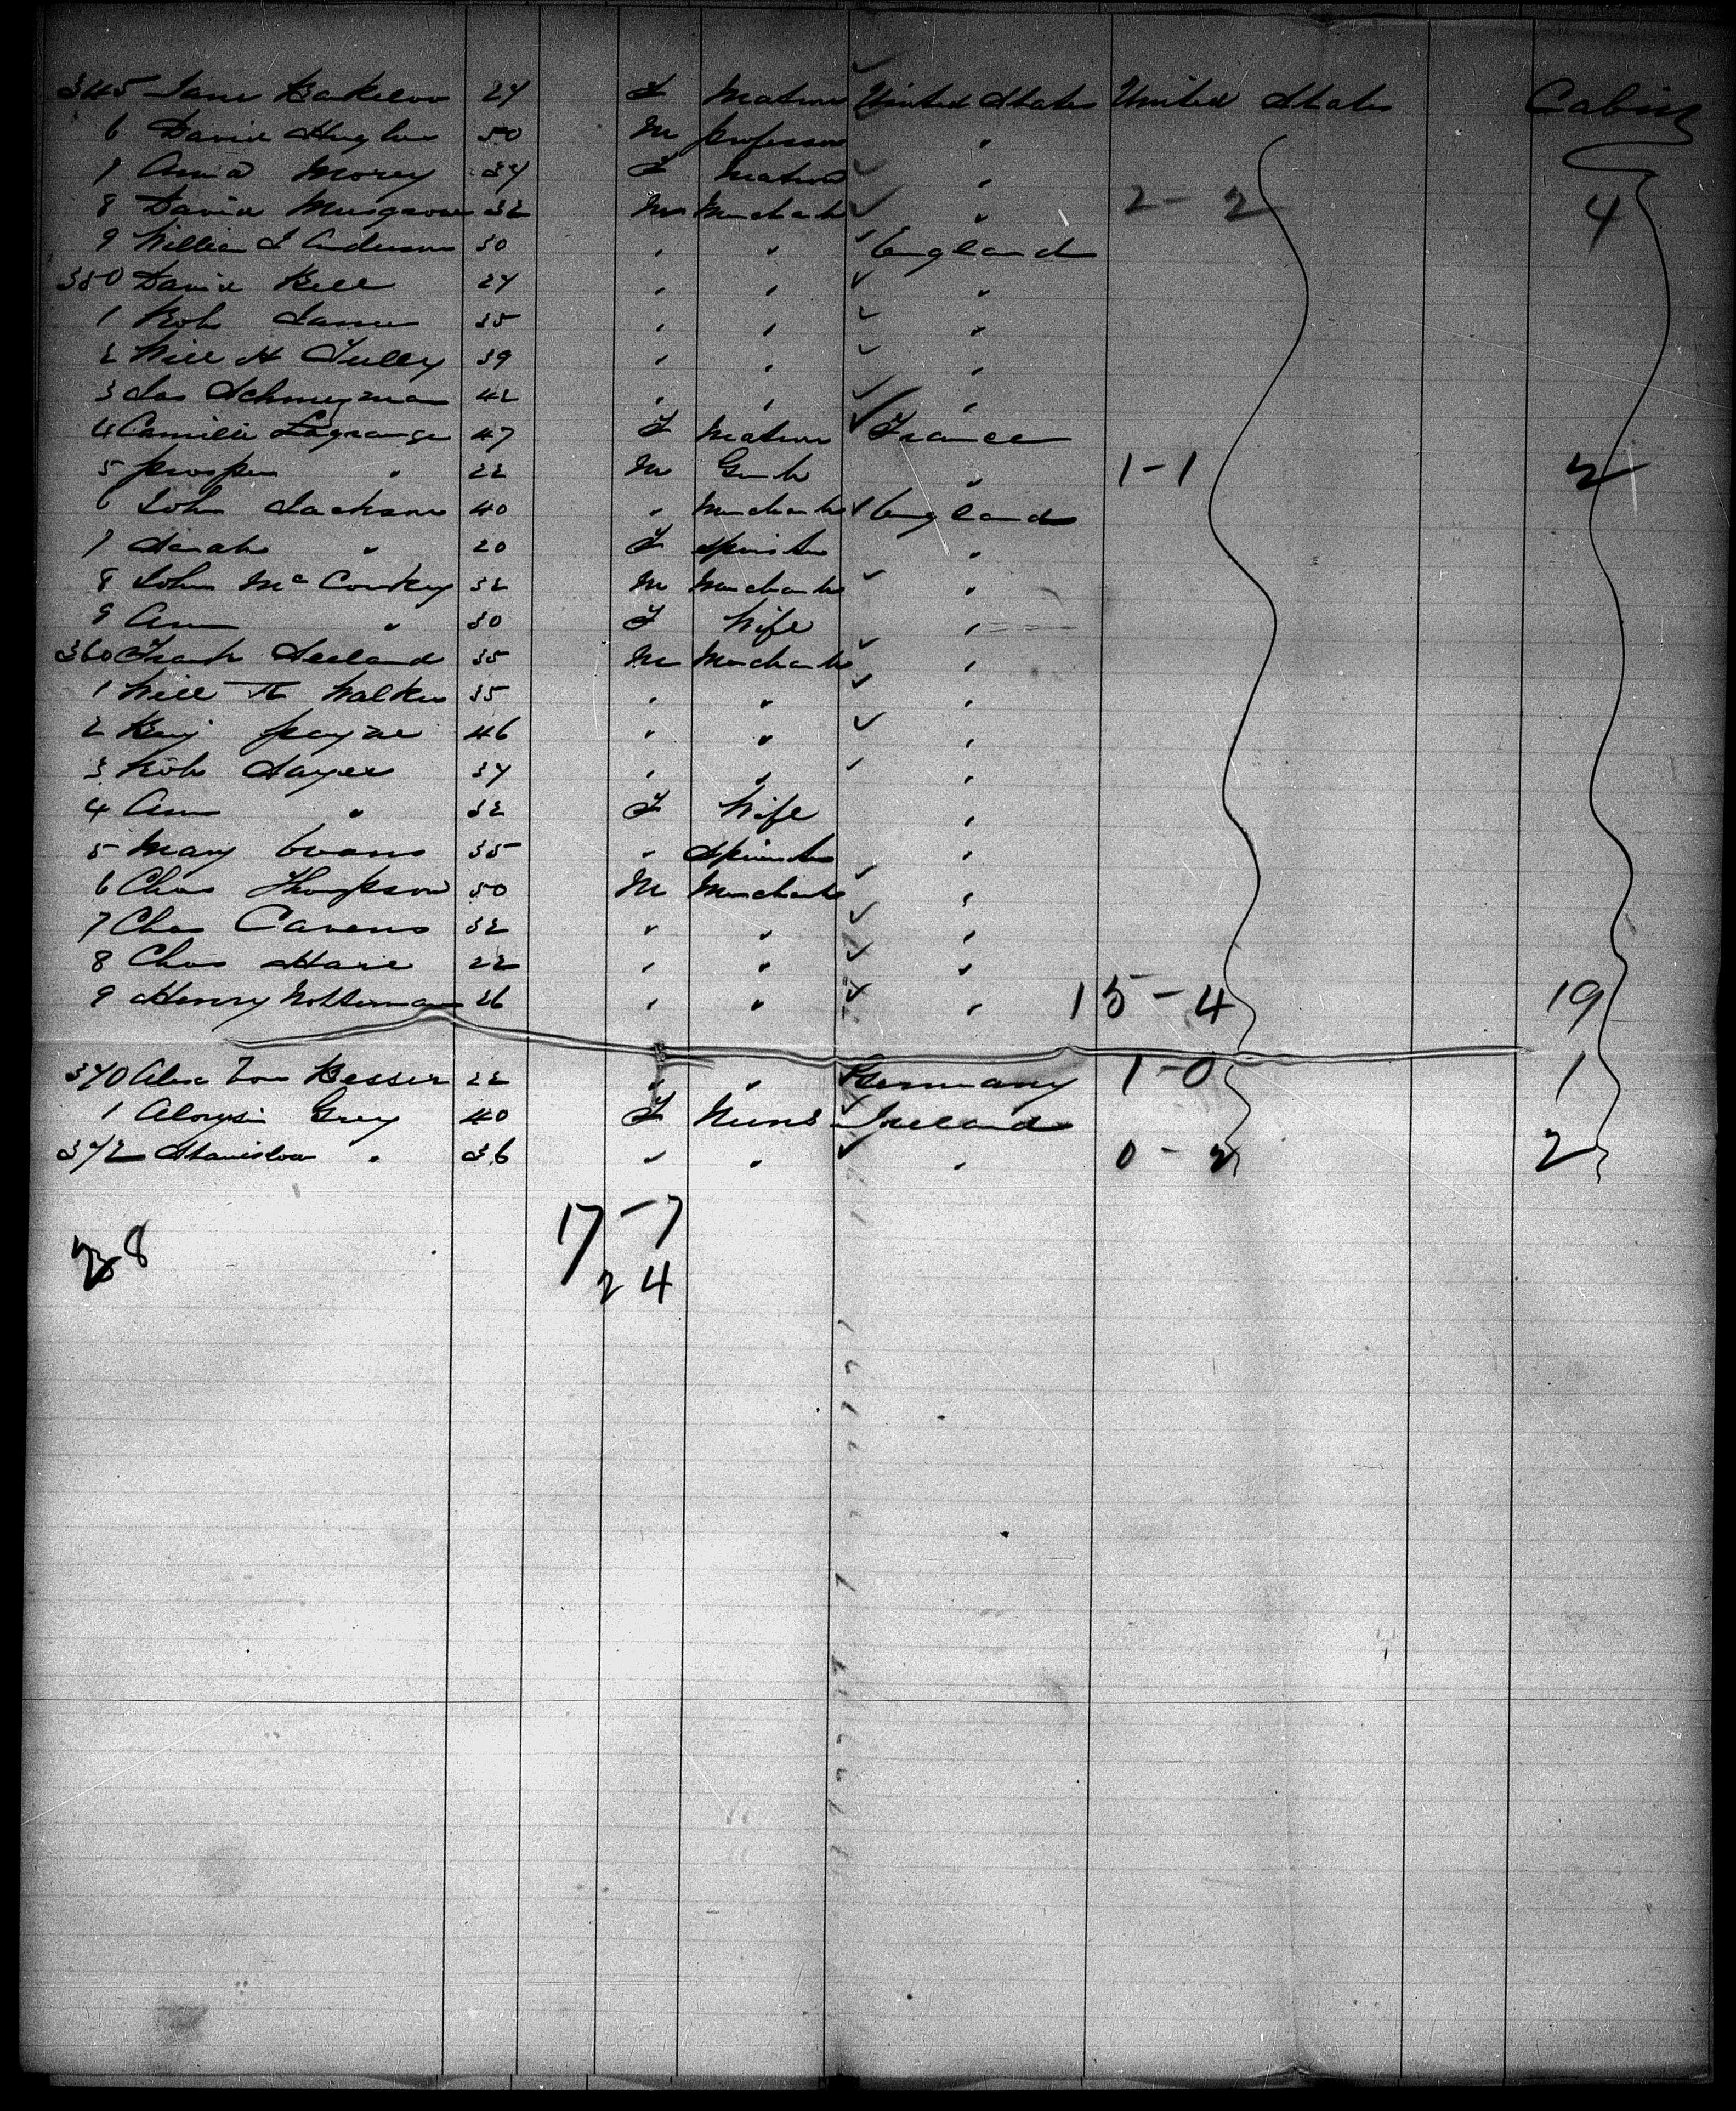 345 Jane 24 F Matron United States United States Cabin
6 David Hughes 50 M Professor "
7 Anna Morey 34 F Matron "
8 David Musgrove 32 M Merchant " 2-2 4
9 William J Anderson 30 " " England
350 David Bell 24 " " "
1 Rob James 35 " " "
2 Will H Tully 39 " " "
3 Jas 42 " " "
4 Camille Lagrange 47 F Matron France
5 Prosper " 22 M Gent " 1-1 2
6 John Jackson 40 " Merchant England
7 Sarah " 20 F Spinster "
8 John McConkey 32 M Merchant "
9 Ann " 30 F Wife "
360 Frank 35 M Merchant "
1 Will Walker 35 " " "
2 Benj Payne 46 " " "
3 Rob Sayer 34 " " "
4 Ann " 32 F Wife "
5 Mary Evans 35 " Spinster "
6 Chas Thompson 50 M Merchant "
7 Chas Cavens 32 " " "
8 Chas Hare 22 " " "
9 Henry 26 " " " 15-4 19
370 Alex Von Besser 22 " " Germany 1-0 1
1 Aloysia Grey 40 F Nuns Ireland
372 Stanislaus " 36 " " " 0-2 2
17-7
28
24